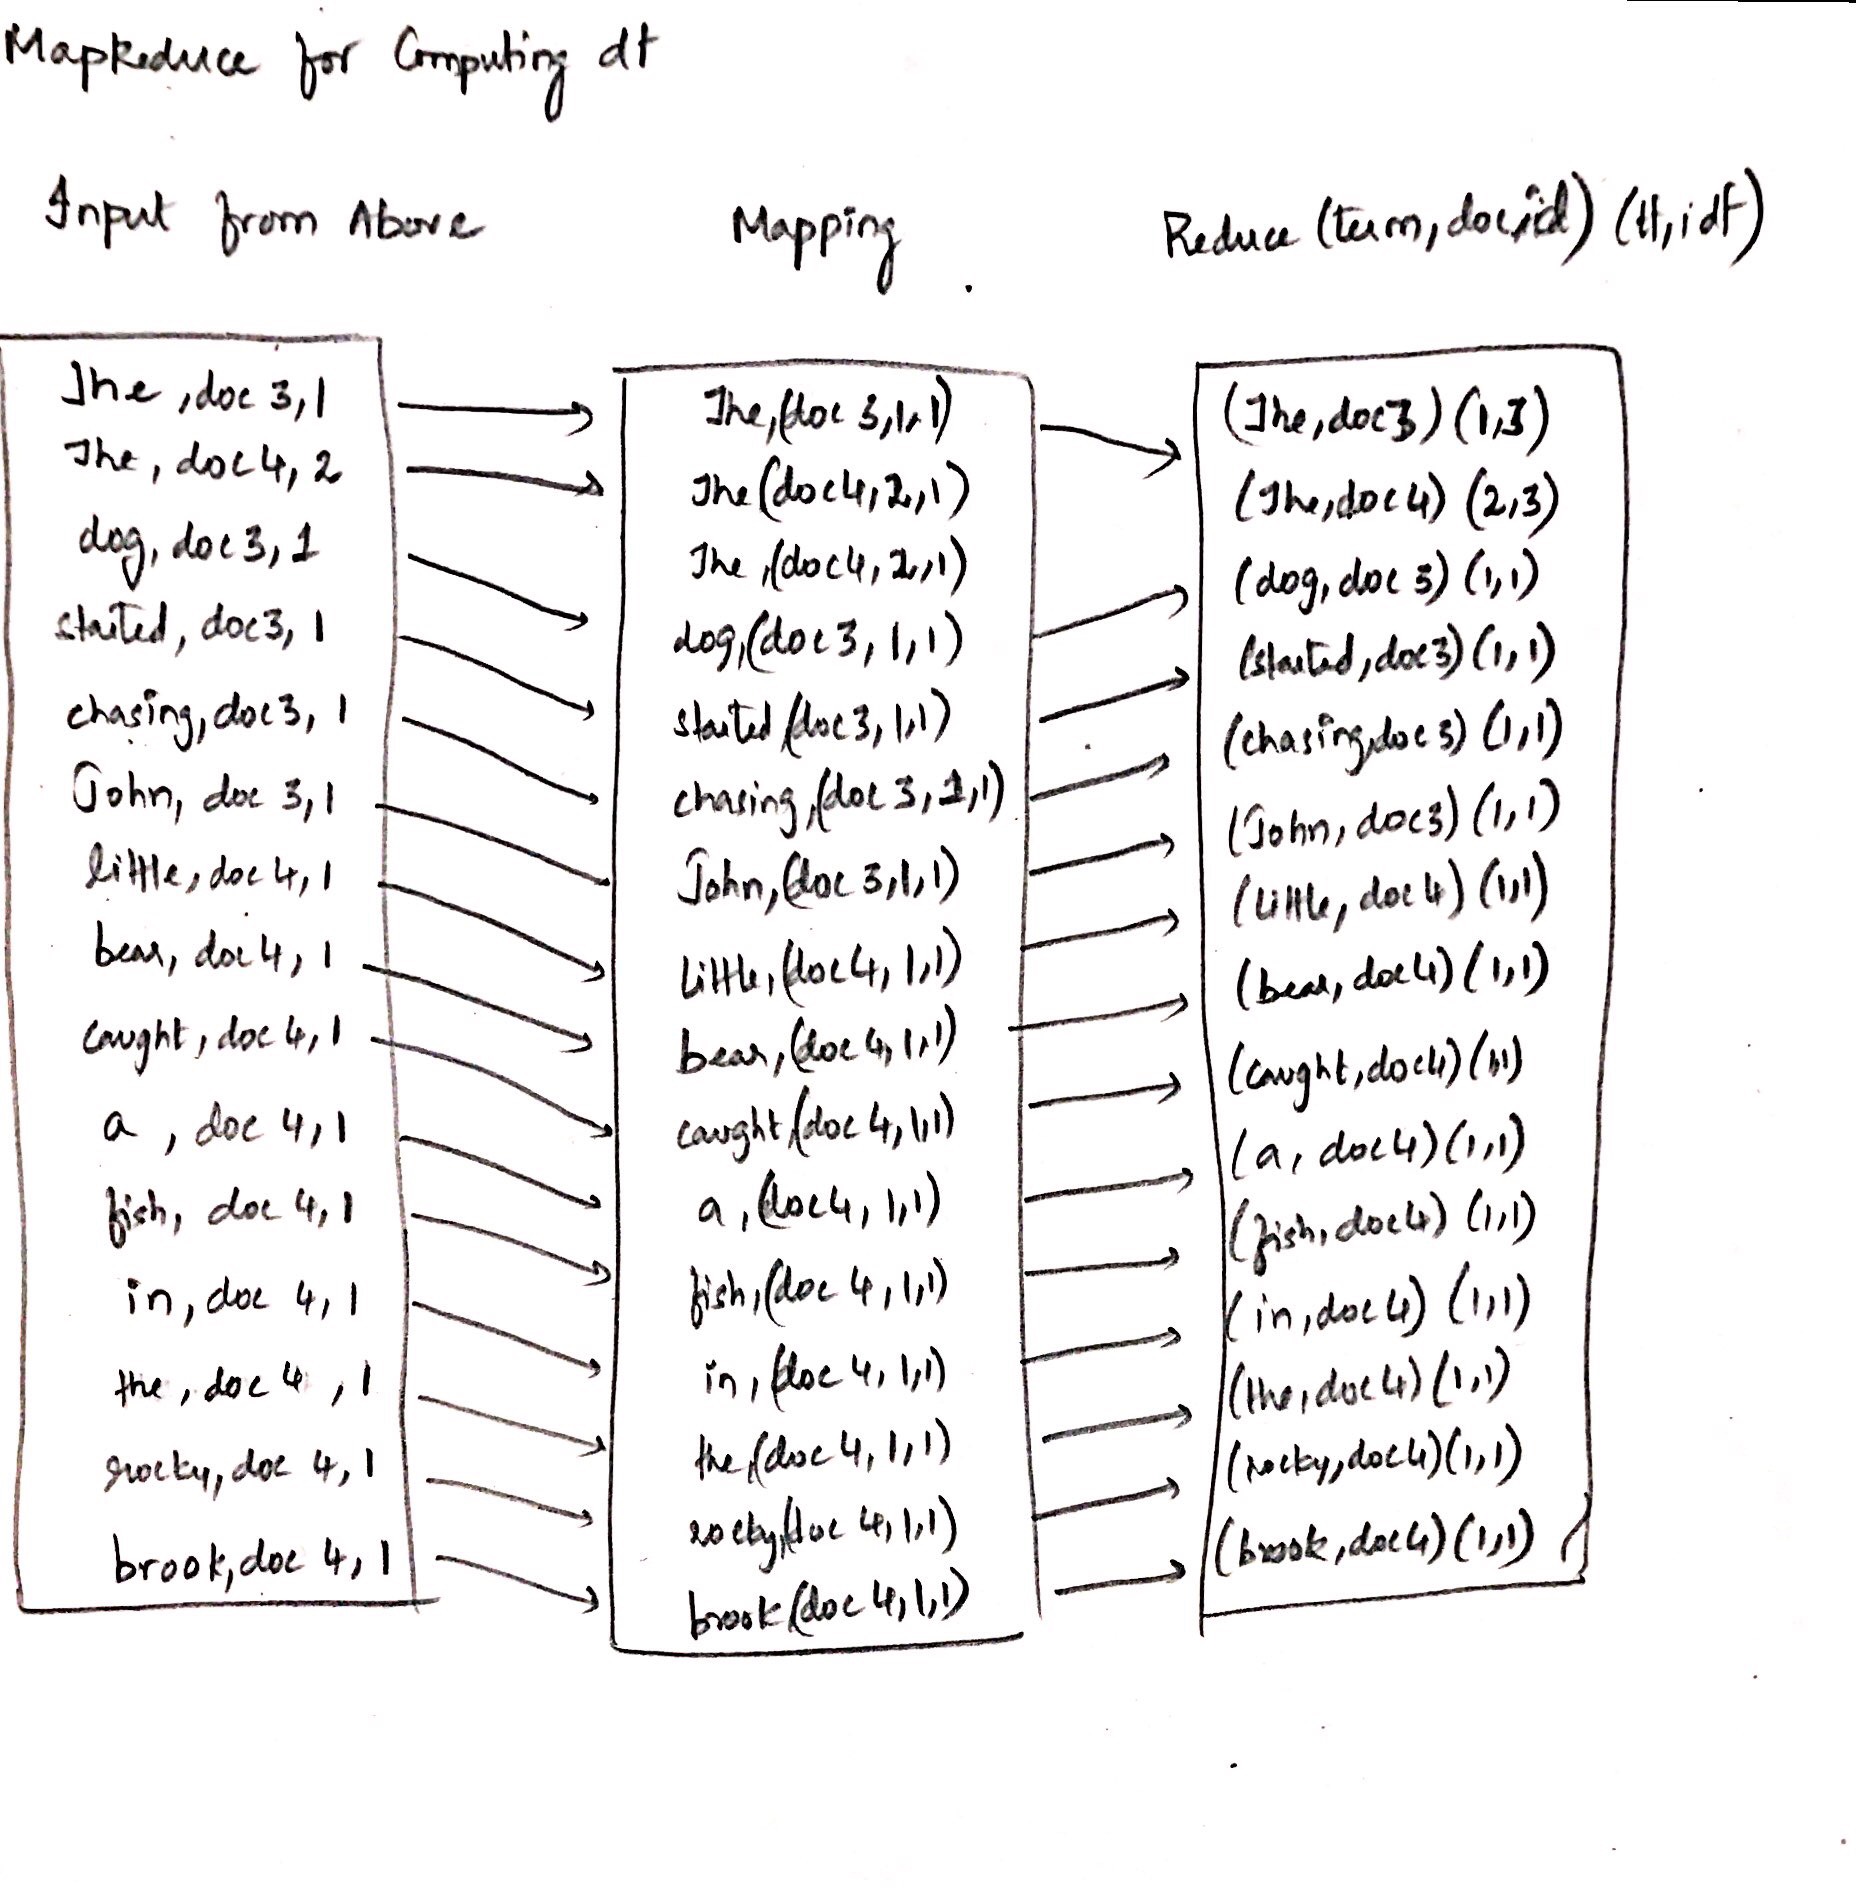 MapReduce for Computing df
Input from Above
Mapping
Reduce (term, docid) (tf, idf)
The, doc 3, 1
The, doc 4, 2
dog, doc 3, 1
started, doc3, 1
chasing, doc3, 1
John, doc 3, 1
little, doc 4, 1
bear, doc 4, 1
caught, doc 4, 1
a , doc 4, 1
fish, doc 4, 1
in, doc 4, 1
the, doc 4 , 1
rocky, doc 4, 1
brook, doc 4, 1
The, (doc 3, 1, 1)
The (doc4, 2, 1)
The, (doc4, 2, 1)
dog, (doc 3, 1, 1)
started, (doc 3, 1, 1)
chasing, (doc 3, 1, 1)
John, (doc 3, 1, 1)
little, (doc 4, 1, 1)
bear, (doc 4, 1, 1)
caught, (doc 4, 1, 1)
a, (doc4, 1, 1)
fish, (doc 4, 1, 1)
in, (doc 4, 1, 1)
the, (doc 4, 1, 1)
rocky, (doc 4, 1, 1)
brook (doc 4, 1, 1)
(The, doc3) (1, 3)
(The, doc 4) (2, 3)
(dog, doc 3) (1, 1)
(started, doc3) (1, 1)
(chasing, doc 3) (1, 1)
(John, doc3) (1, 1)
(little, doc 4) (1, 1)
(bear, doc 4) (1, 1)
(caught, doc4) (1, 1)
(a, doc 4) (1, 1)
(fish, doc4) (1, 1)
(in, doc 4) (1, 1)
(the, doc 4) (1, 1)
(rocky, doc 4) (1, 1)
(brook, doc4) (1, 1)